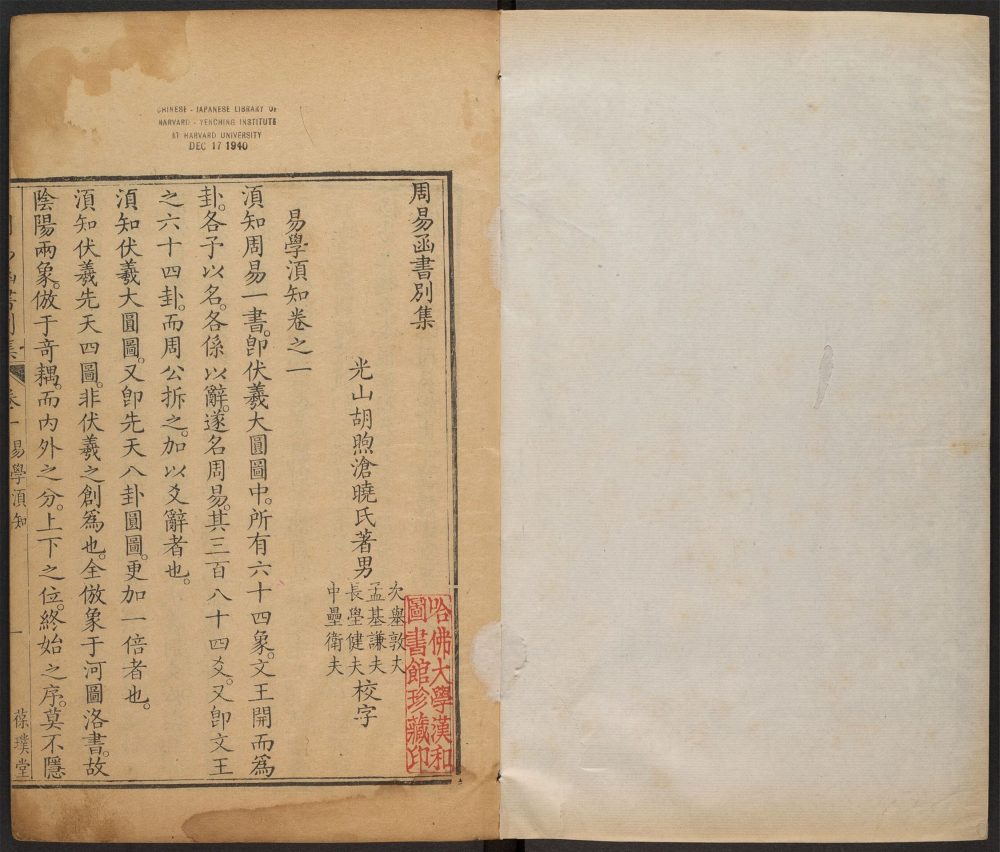 CHINESE - JAPANESE LIBRARY OF
HARVARD - YENCHING INSTITUTE
AT HARVARD UNIVERSITY
DEC 17 1940
周易函書別集
光山胡煦滄曉氏著男
孟基謙夫
長壆健夫
中壘衛夫
校字
易學須知卷之一
須知周易一書。卽伏羲大圓圖中。所有六十四象。文王開而為
卦。各予以名。各係以辭。遂名周易。其三百八十四爻。又卽文王
之六十四卦。而周公拆之。加以爻辭者也。
須知伏羲大圓圖。又卽先天八卦圓圖。更加一倍者也。
須知伏羲先天四圖。非伏羲之創為也。全倣象于河圖洛書。故
陰陽兩象。倣于竒耦。而內外之分。上下之位。終始之序。莫不隱
卷一
易學須知
一
葆璞堂
哈佛大學漢和
圖書館珍藏印